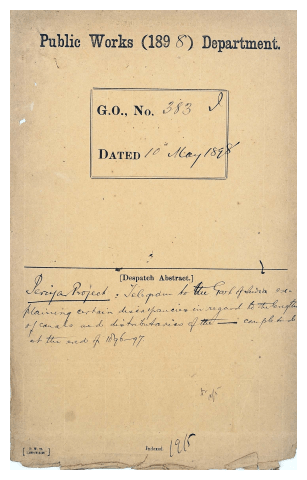 Public Works (1898) Department.
G.O., No. 383 I
DATED 10th May 1898
[Despatch Abstract.]
Periyar Project : Telegram to the Govt of India ex-
plaining certain discrepancies in regard to the lengths
of canals and distributaries of the — completed
at the end of 1896-97.
Indexed